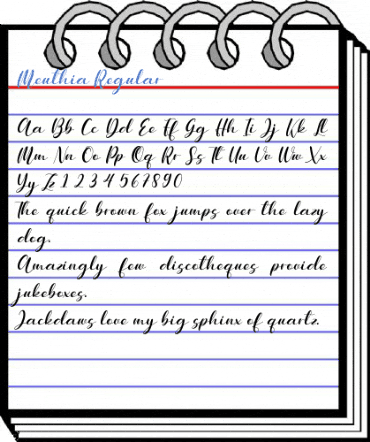 Meuthia Regular
Aa Bb Cc Dd Ee Ff Gg Hh Ii Jj Kk Ll
Mm Nn Oo Pp Qq Rr Ss Tt Uu Vv Ww Xx
Yy Zz 1 2 3 4 5 6 7 8 9 0
The quick brown fox jumps over the lazy
dog.
Amazingly few discotheques provide
jukeboxes.
Jackdaws love my big sphinx of quartz.